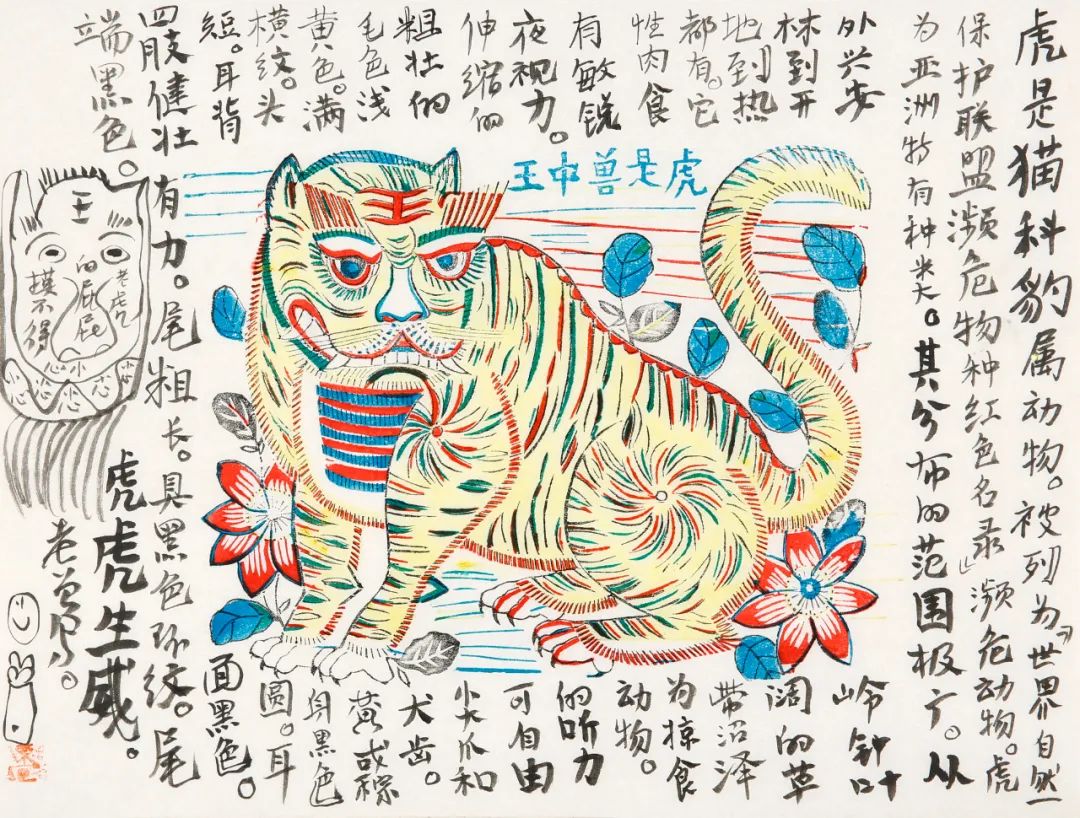 虎是猫科豹属动物。被列为『世界自然
保护联盟濒危物种红色名录』濒危动物。虎
为亚洲特有种类。其分布的范围极广。从
外兴安岭针叶
林到开阔的草
地到热带沼泽
都有。它为掠食
性肉食动物。
有敏锐的听力
夜视力。可自由
伸缩的尖爪和
粗壮的犬齿。
毛色浅黄或棕
黄色。满身黑色
横纹。头圆。耳
短。耳背面黑色。
四肢健壮有力。尾粗长。具黑色环纹。尾
端黑色。
虎虎生威。
虎是兽中王
王
王
老虎
的屁屁
摸不得
小心